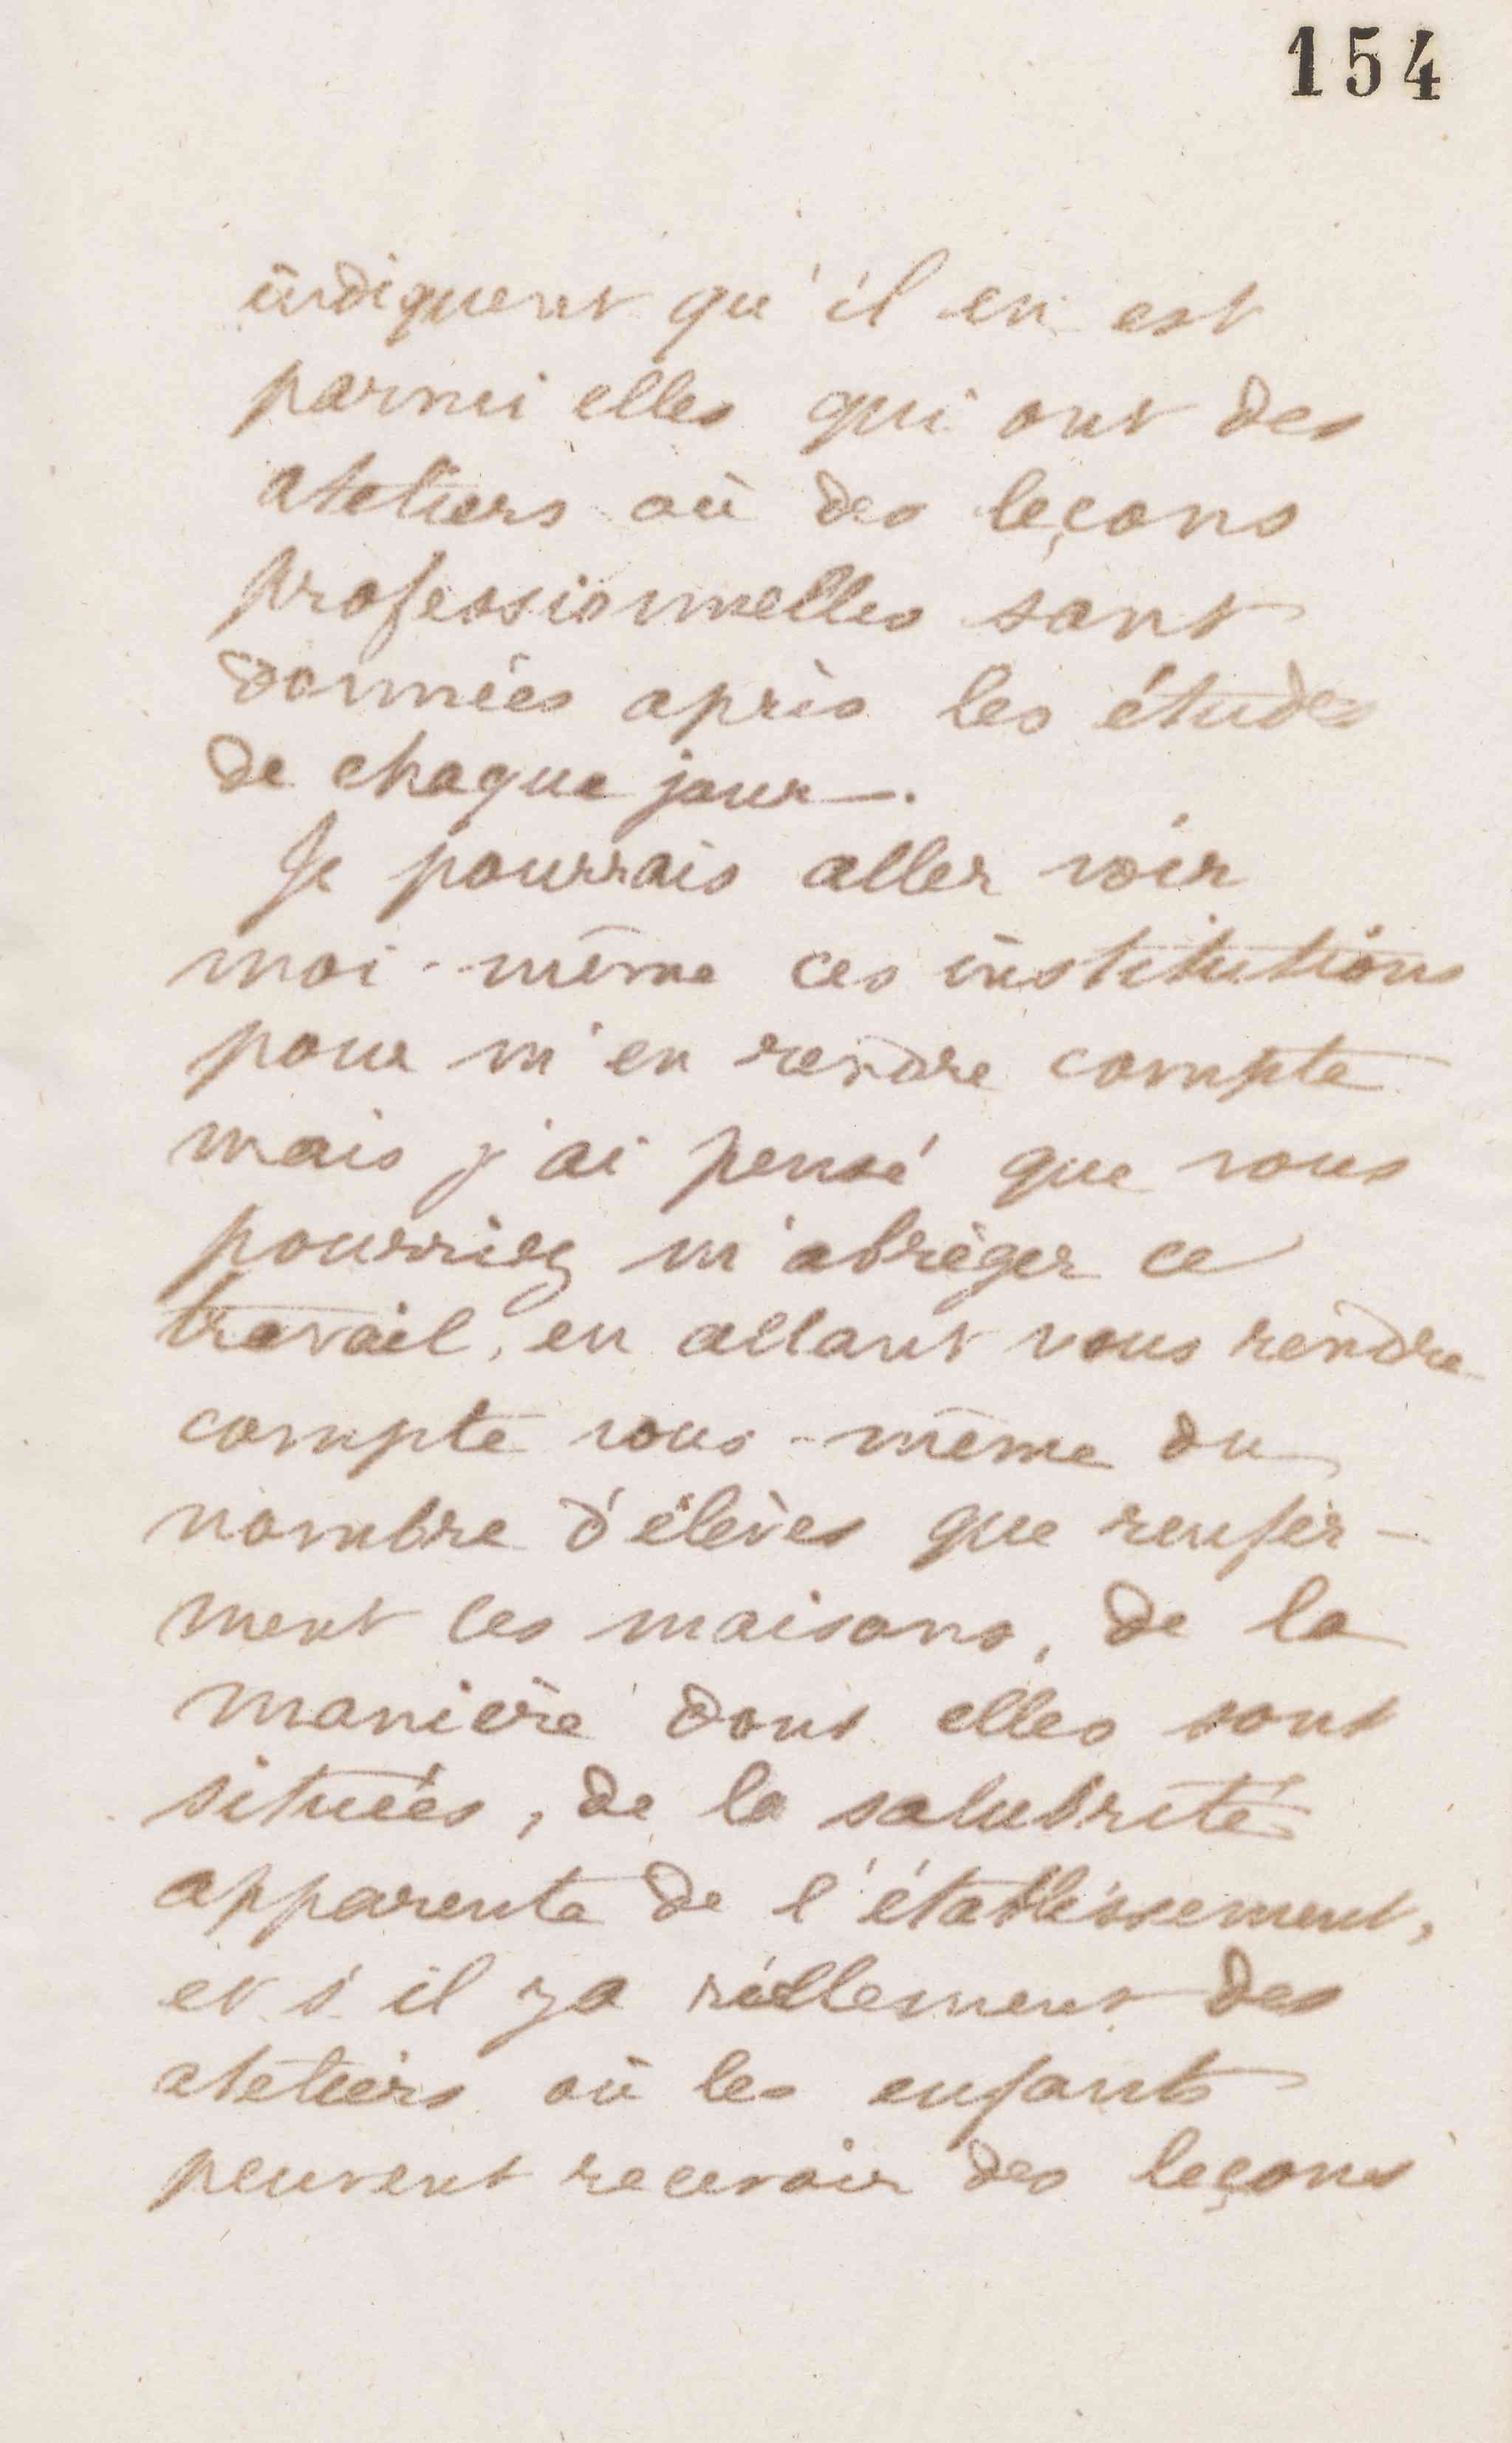 154
indiquent qu'il en est
parmi elles qui ont des
ateliers où des leçons
professionnelles sont
données après les études
de chaque jour —.
Je pourrais aller voir
moi-même ces institutions
pour m'en rendre compte
mais j'ai pensé que vous
pourriez m'abréger ce
travail, en allant vous rendre
compte vous-même du
nombre d'élèves que renfer-
ment ces maisons, de la
manière dont elles sont
situées, de la salubrité
apparente de l'établissement,
et s'il y a réellement des
ateliers où les enfants
peuvent recevoir des leçons